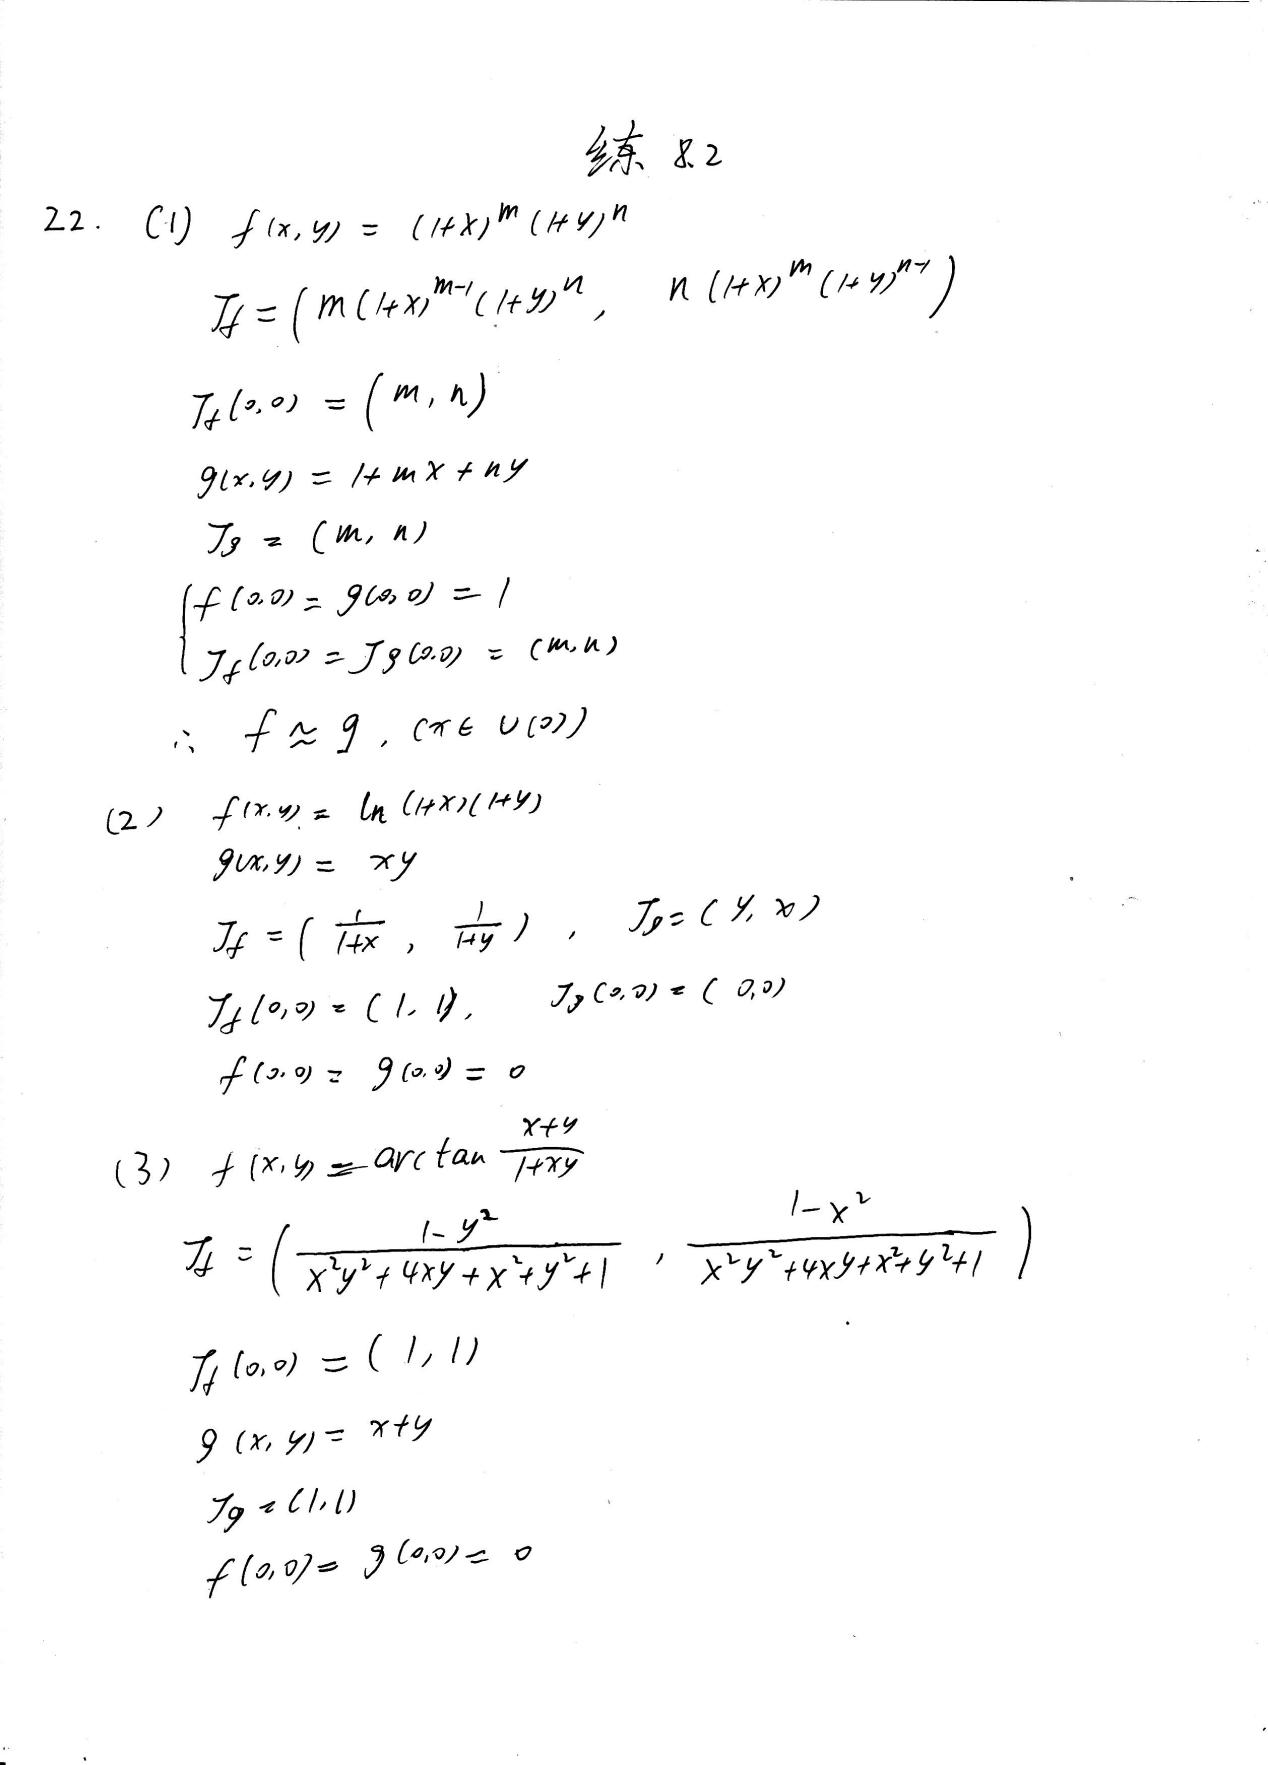 练 8.2
22. (1) f(x,y) = (1+x)^m (1+y)^n
J_f = ( m(1+x)^{m-1}(1+y)^n, n(1+x)^m(1+y)^{n-1} )
J_f(0,0) = (m,n)
g(x,y) = 1+mx+ny
J_g = (m,n)
{ f(0,0) = g(0,0) = 1
J_f(0,0) = J_g(0,0) = (m,n)
∴ f ≈ g, (x ∈ U(0))
(2) f(x,y) = ln (1+x)(1+y)
g(x,y) = xy
J_f = ( \frac{1}{1+x}, \frac{1}{1+y} ), J_g = (y, x)
J_f(0,0) = (1,1), J_g(0,0) = (0,0)
f(0,0) = g(0,0) = 0
(3) f(x,y) = arctan \frac{x+y}{1+xy}
J_f = ( \frac{1-y^2}{x^2y^2+4xy+x^2+y^2+1}, \frac{1-x^2}{x^2y^2+4xy+x^2+y^2+1} )
J_f(0,0) = (1,1)
g(x,y) = x+y
J_g = (1,1)
f(0,0) = g(0,0) = 0